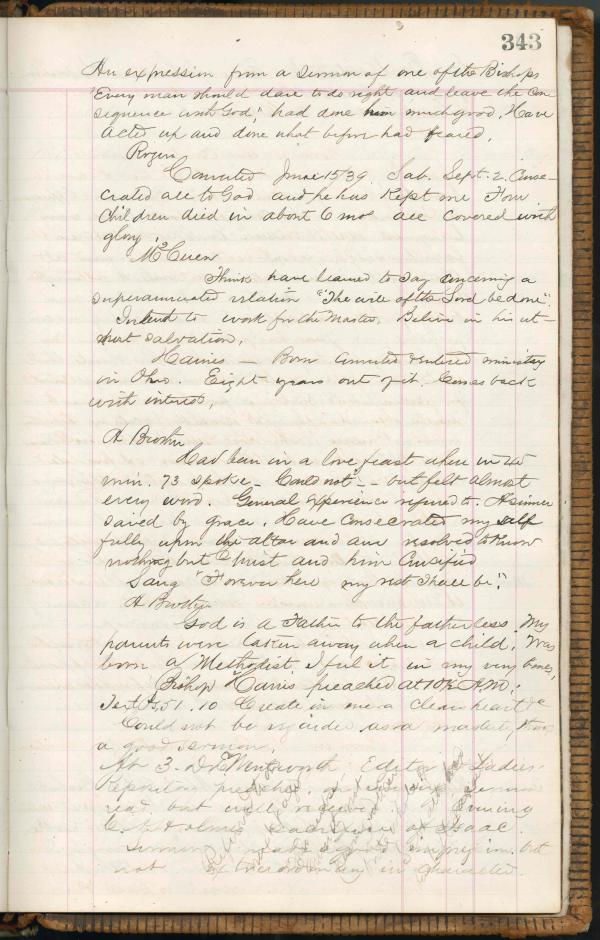 343
An expression from a sermon of one of the Bishops
"Every man should dare to do right and leave the con
sequence with God," had done him much good. Have
acted up and done what before had feared.
Rogers
Converted June 15/39. Sab. Sept. 2. Conse-
crated all to God and he has kept me Four
children died in about 6 mos all covered with
glory.
McCuen
Think have learned to say concerning a
superannuated relation "The will of the Lord be done".
Intend to work for the Master. Believe in his ut-
most salvation.
Harris — Born converted & entered ministry
in Ohio. Eight years out of it. Comes back
with interest.
A Brother
Had been in a love feast where in
min. 73 spoke – Could not – but felt almost
every word. General experience referred to. A sinner
saved by grace. Have consecrated my self
fully upon the altar and am resolved to know
nothing but Christ and him Crucified
Sang "Forever here my rest shall be".
A Brother
God is a Father to the fatherless. My
parents were taken away when a child. Was
born a Methodist. I feel it in my very bones.
Bishop Harris preached at 10½ A.M.
Text Ps. 51.10 Create in me a clean heart &c
Could not be regarded as a masterly, than
a good sermon.
3. Dr Wentworth Editor Ladies
Repository preached
read but well received. Evening
C. Holmes Sacrifice of Isaac.
Sermon made a good impression but
not extraordinary in character.